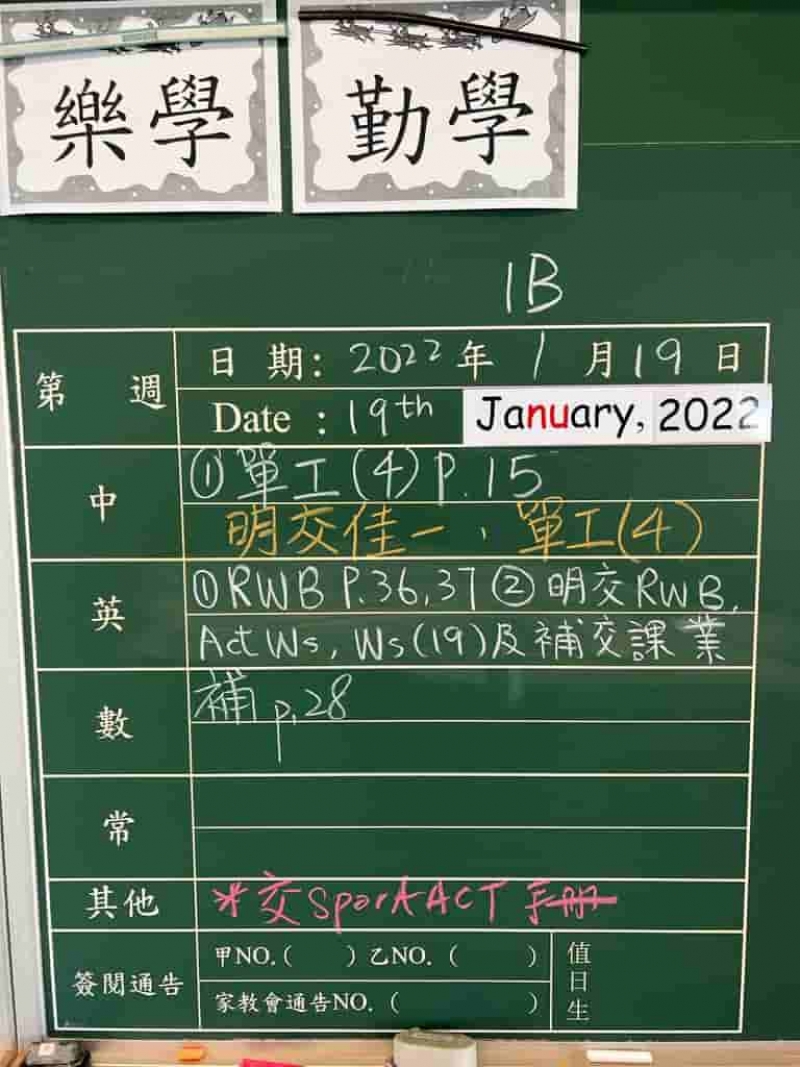 樂學
勤學
1B
第 週
日 期: 2022 年 1 月 19 日
Date : 19th January, 2022
中
①單工(4)P.15
明交佳一、單工(4)
英
①RWB P.36,37 ②明交RWB,
Act Ws, Ws(19)及補交課業
數
補 p.28
常
其他
*交SportACT 手冊
簽閱通告
甲NO.( ) 乙NO. ( )
家教會通告NO. ( )
值日生